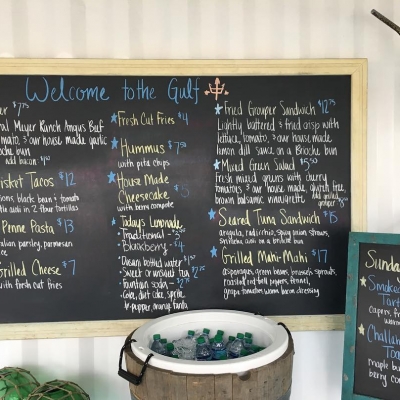 Welcome to the Gulf
$7.75
Meyer Ranch Angus Beef
tomato, & our house made garlic
Brioche bun
add bacon
Tacos $12
black bean & tomato
in 2 flour tortillas
Penne Pasta $13
Italian parsley, parmesan
Grilled Cheese $7
with fresh cut fries
Fresh Cut Fries $4
Hummus $7.50
with pita chips
House Made
Cheesecake $5
with berry compote
Today's Lemonade
- Traditional -
- Blackberry - $4
Dasani bottled water
Sweet or unsweet tea
Fountain soda
Coke, diet coke, sprite
dr. pepper, orange fanta
Fried Grouper Sandwich $12.75
Lightly battered & fried crisp with
lettuce, tomato, & our house made
lemon dill sauce on a Brioche bun
Mixed Green Salad $5.50
Fresh mixed greens with cherry
tomatoes & our house made, gluten free,
brown balsamic vinaigrette
add grilled
Seared Tuna Sandwich $15
arugula, radicchio,
on a brioche bun
Grilled Mahi-Mahi $17
asparagus, green beans, brussels sprouts,
roasted red bell peppers, fennel,
grape tomatoes, warm bacon dressing
Sunda
Smoke
Tart
capers,
Challa
Toa
maple bu
berry com